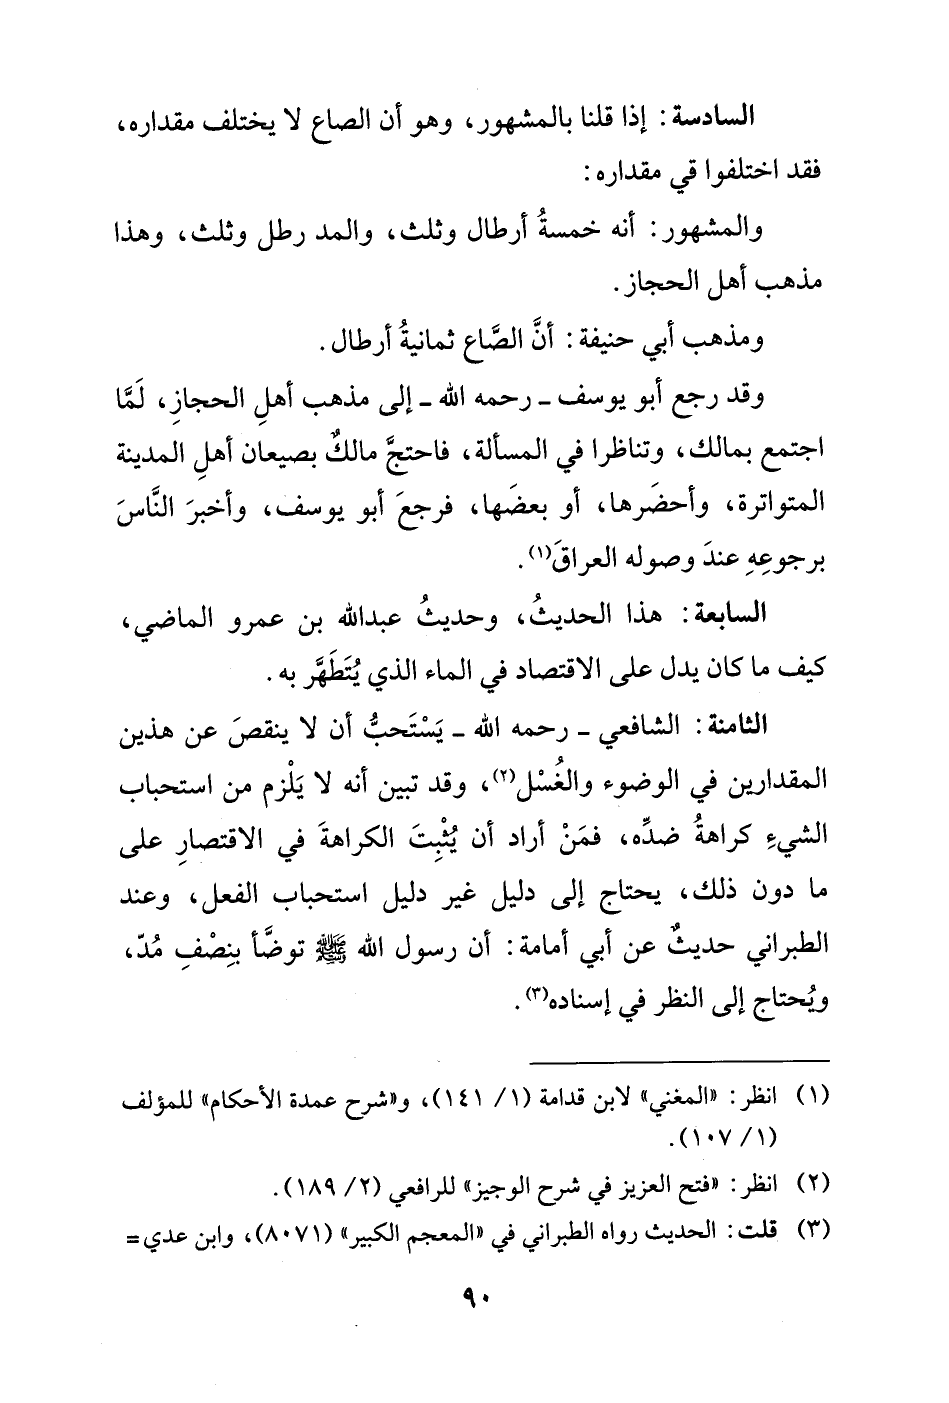 السادسة: إذا قلنا بالمشهور، وهو أن الصاع لا يختلف مقداره،
فقد اختلفوا قي مقداره:
والمشهور: أنه خمسةُ أرطال وثلث، والمد رطل وثلث، وهذا
مذهب أهل الحجاز.
ومذهب أبي حنيفة: أنَّ الصَّاع ثمانيةُ أرطال.
وقد رجع أبو يوسف ـ رحمه الله ـ إلى مذهب أهلِ الحجازِ، لَمَّا
اجتمع بمالك، وتناظرا في المسألة، فاحتجَّ مالكٌ بصيعان أهلِ المدينة
المتواترة، وأحضَرها، أو بعضَها، فرجعَ أبو يوسف، وأخبرَ النَّاسَ
برجوعِهِ عندَ وصوله العراقَ(١).
السابعة: هذا الحديثُ، وحديثُ عبدالله بن عمرو الماضي،
كيف ما كان يدل على الاقتصاد في الماء الذي يُتَطَهَّر به.
الثامنة: الشافعي ـ رحمه الله ـ يَسْتَحبُّ أن لا ينقصَ عن هذين
المقدارين في الوضوء والغُسْل(٢)، وقد تبين أنه لا يَلْزم من استحباب
الشيءِ كراهةُ ضدِّه، فمَنْ أراد أن يُثْبِتَ الكراهةَ في الاقتصارِ على
ما دون ذلك، يحتاج إلى دليل غير دليل استحباب الفعل، وعند
الطبراني حديثٌ عن أبي أمامة: أن رسول الله ﷺ توضَّأ بنِصْفِ مُدّ،
ويُحتاج إلى النظر في إسناده(٣).
(١) انظر: «المغني» لابن قدامة (١/ ١٤١)، و«شرح عمدة الأحكام» للمؤلف
(١/ ١٠٧).
(٢) انظر: «فتح العزيز في شرح الوجيز» للرافعي (٢/ ١٨٩).
(٣) قلت: الحديث رواه الطبراني في «المعجم الكبير» (٨٠٧١)، وابن عدي=
٩٠